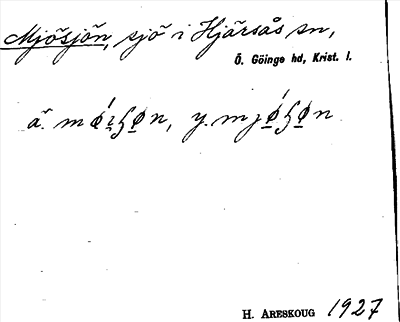 Mjösjön, sjö i Hjärsås sn,
Ö. Göinge hd, Krist. l.
ä. m ǿ ɀ ɧ ø n, y. m j ǿ ɧ ø n
H. Areskoug 1927